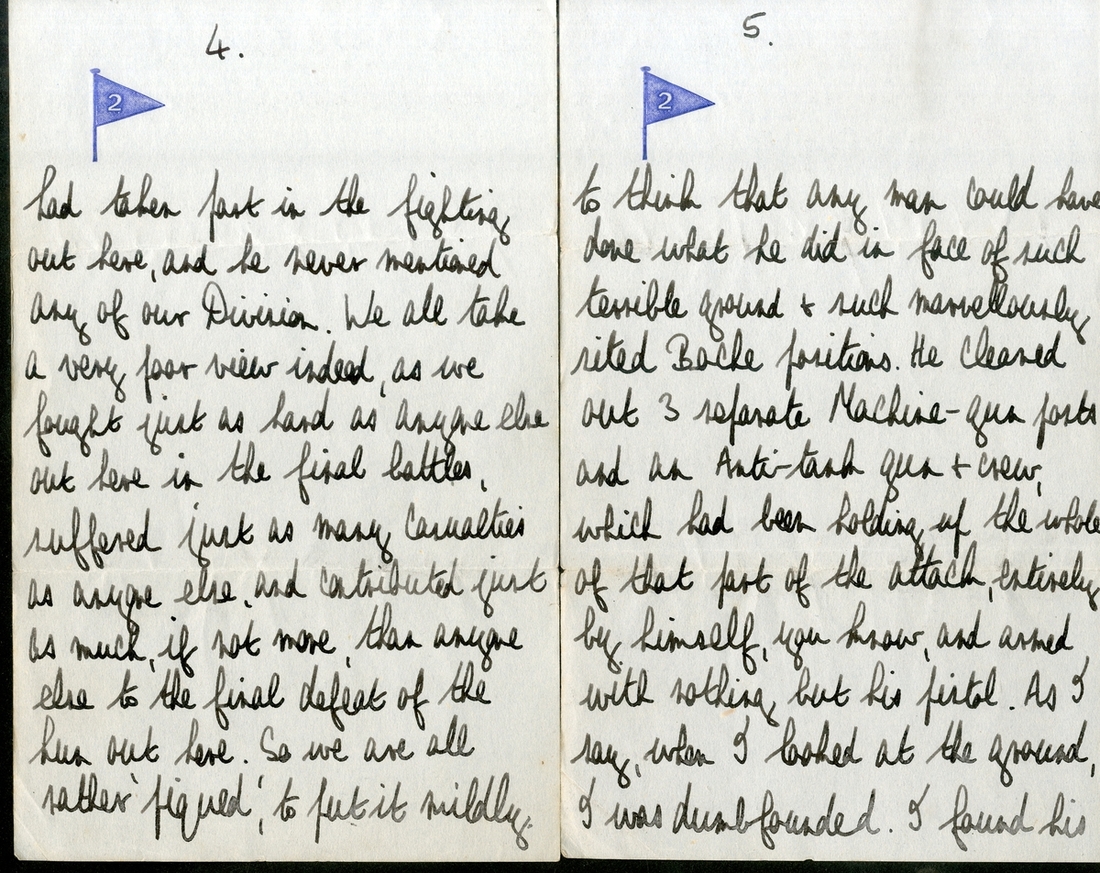 4.
2
had taken part in the fighting
out here, and he never mentioned
any of our Division. We all take
a very poor view indeed, as we
fought just as hard as anyone else
out here in the final battles,
suffered just as many casualties
as anyone else, and contributed just
as much, if not more, than anyone
else to the final defeat of the
hun out here. So we are all
rather 'piqued', to put it mildly.
5.
2
to think that any man could have
done what he did in face of such
terrible ground & such marvellously
sited Boche positions. He cleared
out 3 separate Machine-gun posts
and an Anti-tank gun & crew,
which had been holding up the whole
of that part of the attack, entirely
by himself, you know, and armed
with nothing but his pistol. As I
say, when I looked at the ground,
I was dumbfounded. I found his